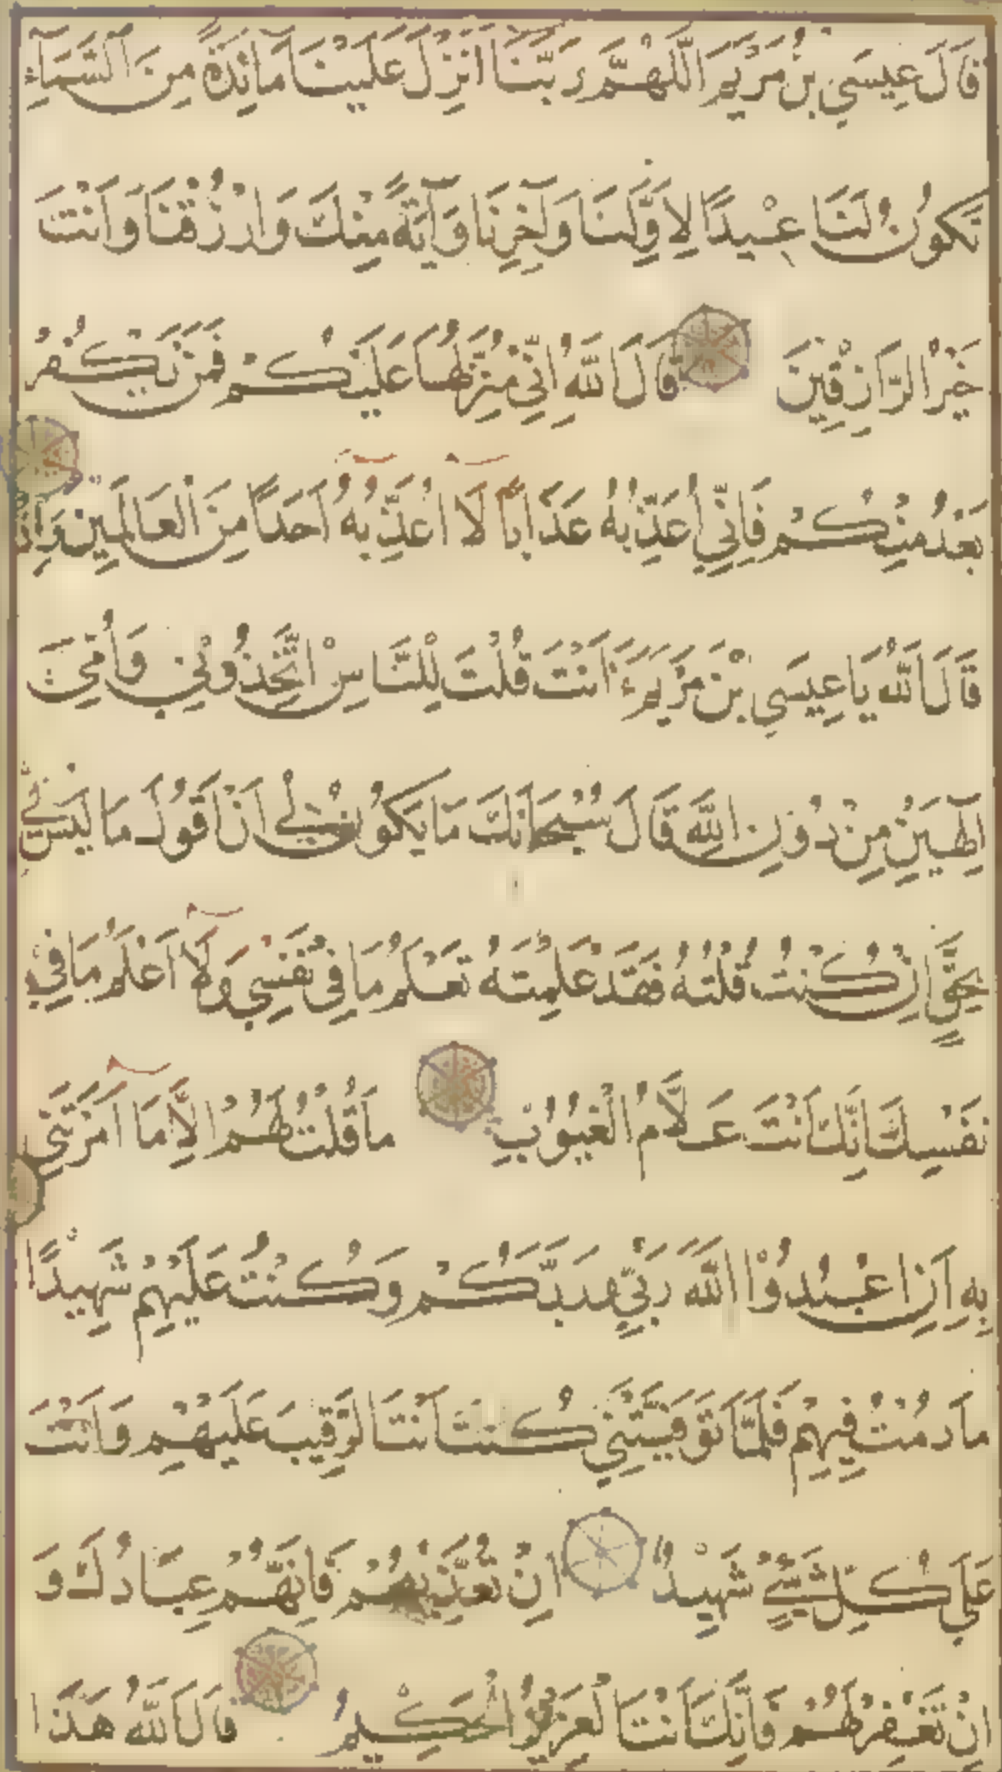 قَالَ عِيسَى بْنُ مَرْيَمَ اللَّهُمَّ رَبَّنَا أَنْزِلْ عَلَيْنَا مَائِدَةً مِنَ السَّمَاءِ
تَكُونُ لَنَا عِيدًا لِأَوَّلِنَا وَآخِرِنَا وَآيَةً مِنْكَ وَارْزُقْنَا وَأَنْتَ
خَيْرُ الرَّازِقِينَ قَالَ اللَّهُ إِنِّي مُنَزِّلُهَا عَلَيْكُمْ فَمَنْ يَكْفُرْ
بَعْدُ مِنْكُمْ فَإِنِّي أُعَذِّبُهُ عَذَابًا لَا أُعَذِّبُهُ أَحَدًا مِنَ الْعَالَمِينَ وَإِذْ
قَالَ اللَّهُ يَا عِيسَى بْنَ مَرْيَمَ ءَأَنْتَ قُلْتَ لِلنَّاسِ اتَّخِذُونِي وَأُمِّيَ
إِلَهَيْنِ مِنْ دُونِ اللَّهِ قَالَ سُبْحَانَكَ مَا يَكُونُ لِي أَنْ أَقُولَ مَا لَيْسَ لِي
بِحَقٍّ إِنْ كُنْتُ قُلْتُهُ فَقَدْ عَلِمْتَهُ تَعْلَمُ مَا فِي نَفْسِي وَلَا أَعْلَمُ مَا فِي
نَفْسِكَ إِنَّكَ أَنْتَ عَلَّامُ الْغُيُوبِ مَا قُلْتُ لَهُمْ إِلَّا مَا أَمَرْتَنِي
بِهِ أَنِ اعْبُدُوا اللَّهَ رَبِّي وَرَبَّكُمْ وَكُنْتُ عَلَيْهِمْ شَهِيدًا
مَا دُمْتُ فِيهِمْ فَلَمَّا تَوَفَّيْتَنِي كُنْتَ أَنْتَ الرَّقِيبَ عَلَيْهِمْ وَأَنْتَ
عَلَى كُلِّ شَيْءٍ شَهِيدٌ إِنْ تُعَذِّبْهُمْ فَإِنَّهُمْ عِبَادُكَ وَ
إِنْ تَغْفِرْ لَهُمْ فَإِنَّكَ أَنْتَ الْعَزِيزُ الْحَكِيمُ قَالَ اللَّهُ هَذَا